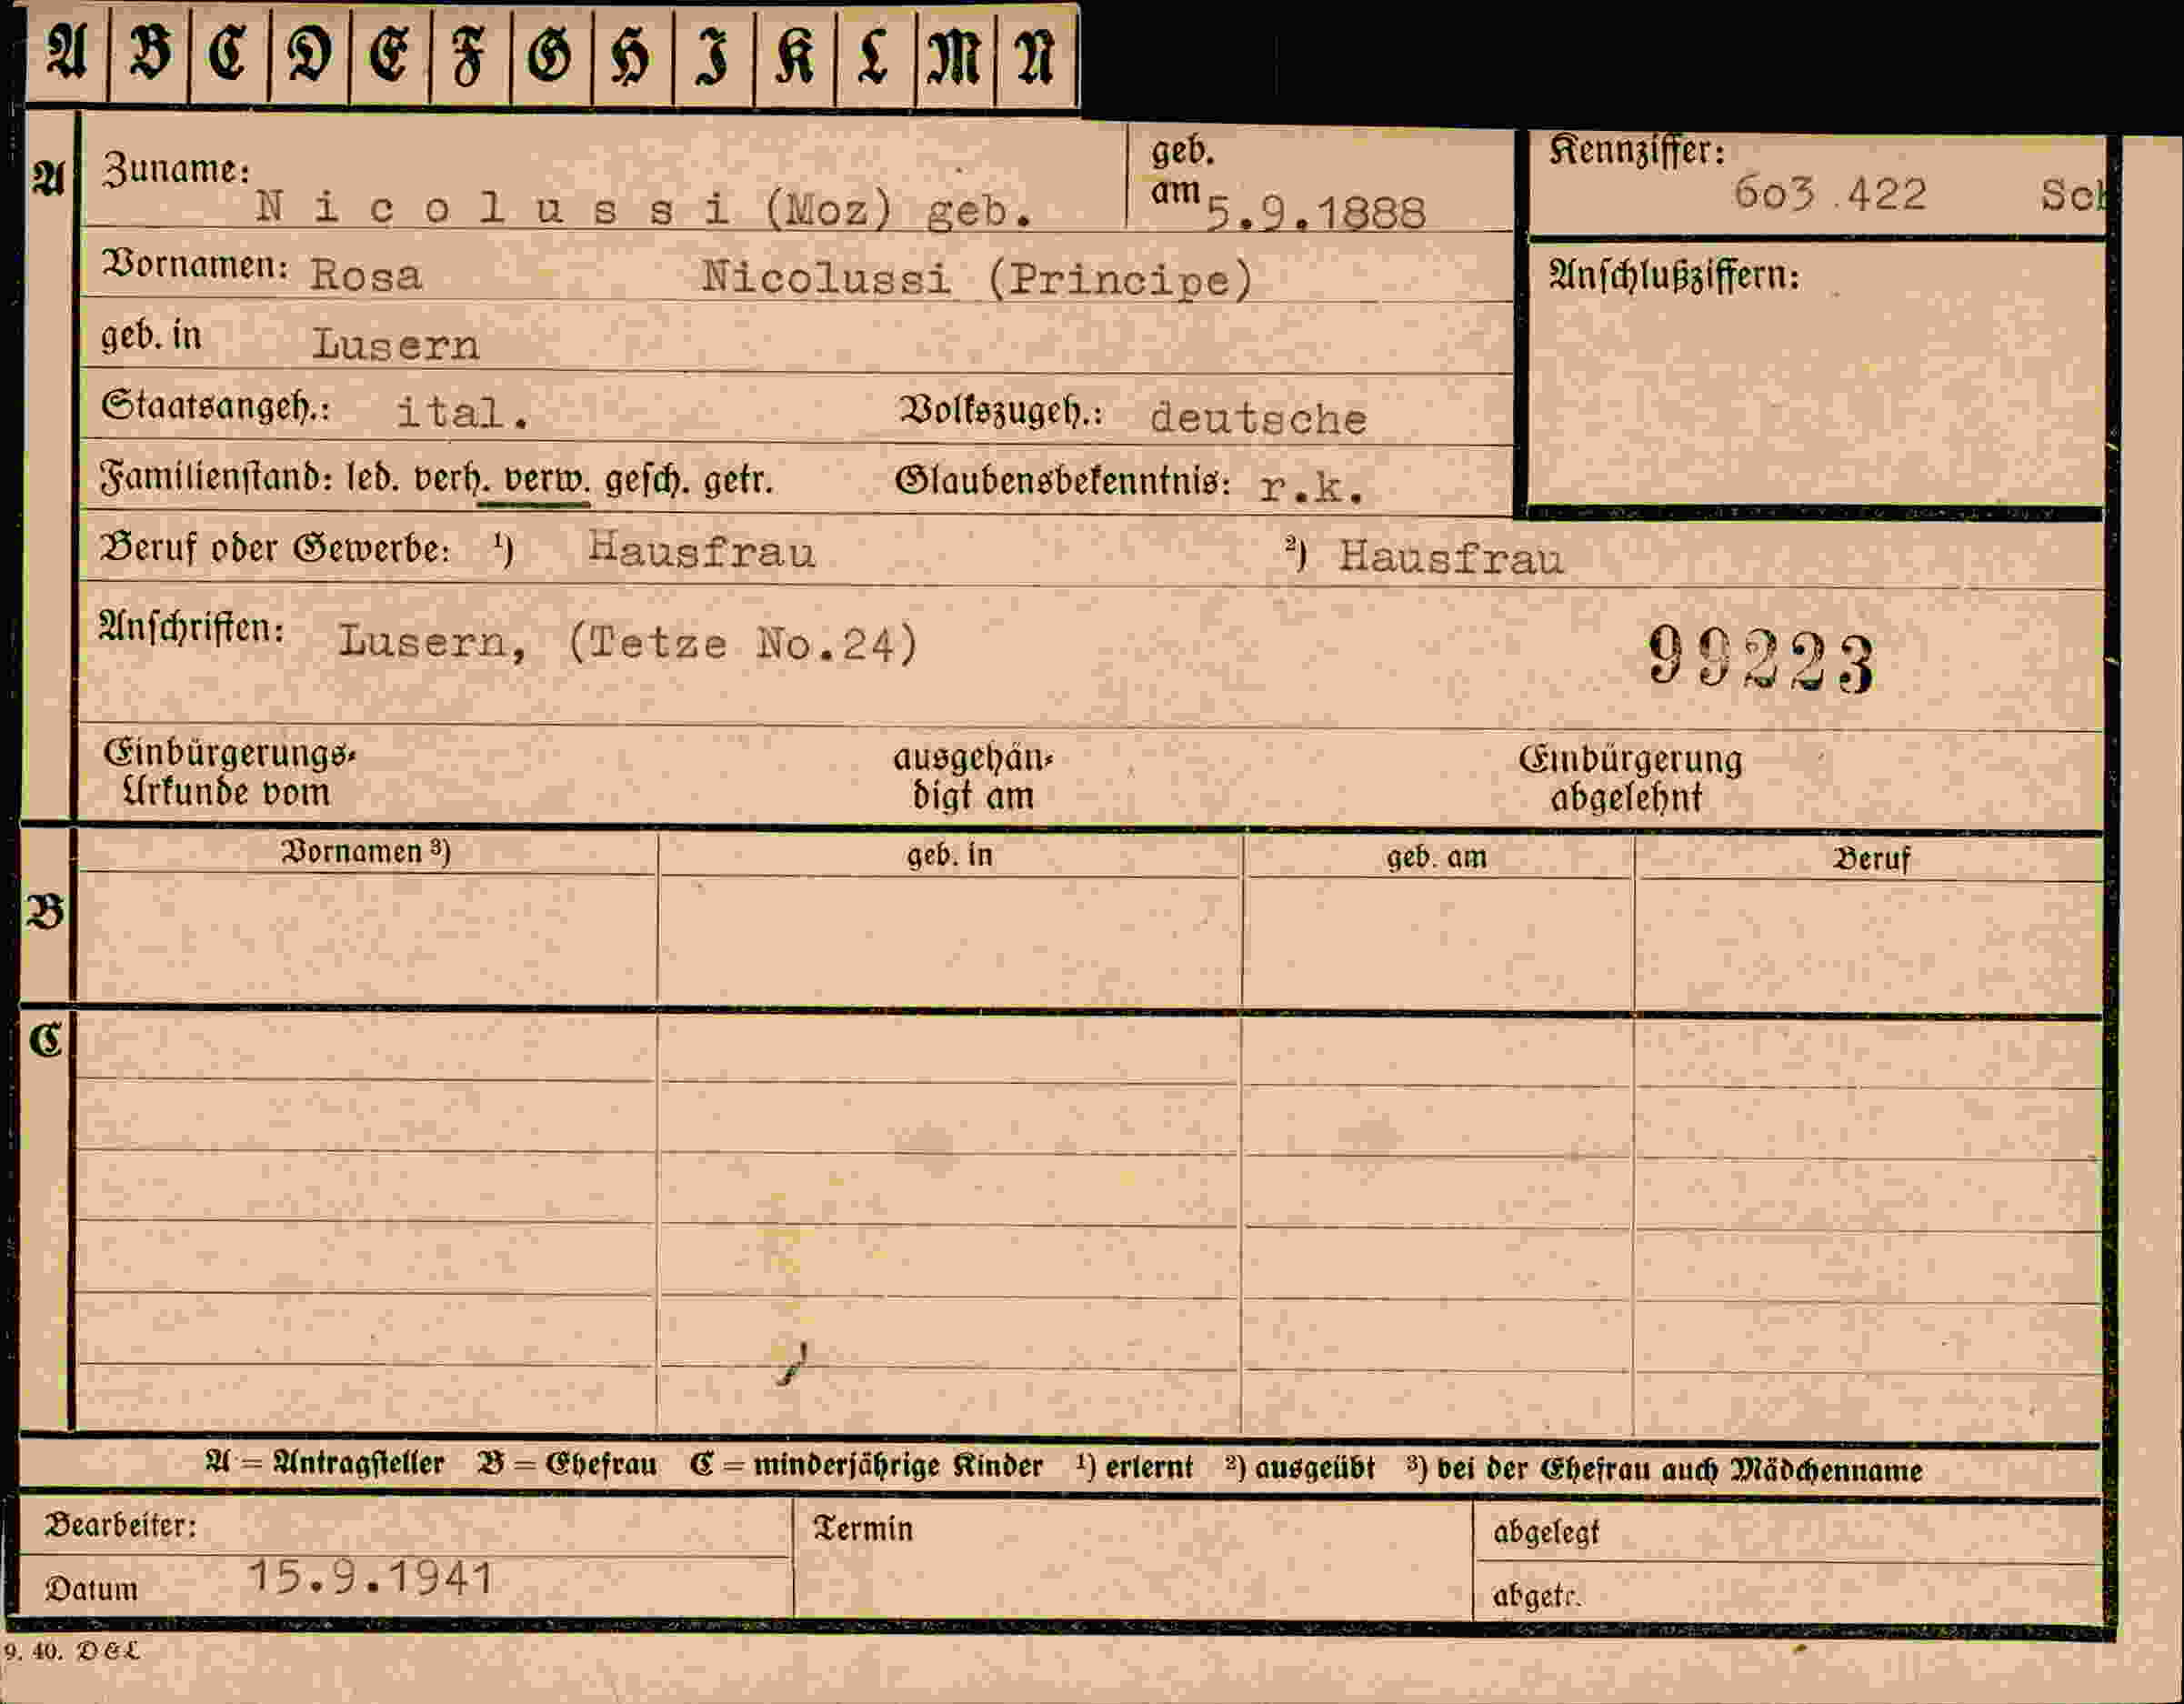 A B C D E F G H I K L M N
A
Zuname: Nicolussi (Moz) geb.
geb. am 5.9.1888
Kennziffer: 603.422 Sch
Vornamen: Rosa Nicolussi (Principe)
Anschlußziffern:
geb. in Lusern
Staatsangeh.: ital. Volkszugeh.: deutsche
Familienstand: led. verh. verw. gesch. getr. Glaubensbekenntnis: r.k.
Beruf oder Gewerbe: ¹) Hausfrau ²) Hausfrau
Anschriften: Lusern, (Tetze No.24) 99223
Einbürgerungs- ausgehän- Einbürgerung
Urkunde vom digt am abgelehnt
Vornamen ³) geb. in geb. am Beruf
B
C
A = Antragsteller B = Ehefrau C = minderjährige Kinder ¹) erlernt ²) ausgeübt ³) bei der Ehefrau auch Mädchenname
Bearbeiter: Termin abgelegt
Datum 15.9.1941 abgetr.
9. 40. DEL